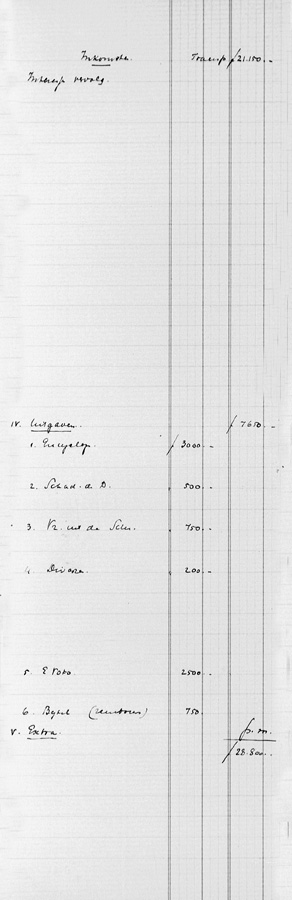 Inkomsten. Transp. ƒ 21.150.-
IV. Uitgaven. ƒ 7650.-
1. Encyclop. ƒ 3000.-
2. Schad. d. D. " 500.-
3. Vr. uit de Schr. " 750.-
4. Diverse. " 200.-
5. 2500.-
6. Bijbel 750.
V. Extra. p.m.
ƒ 28.800.-